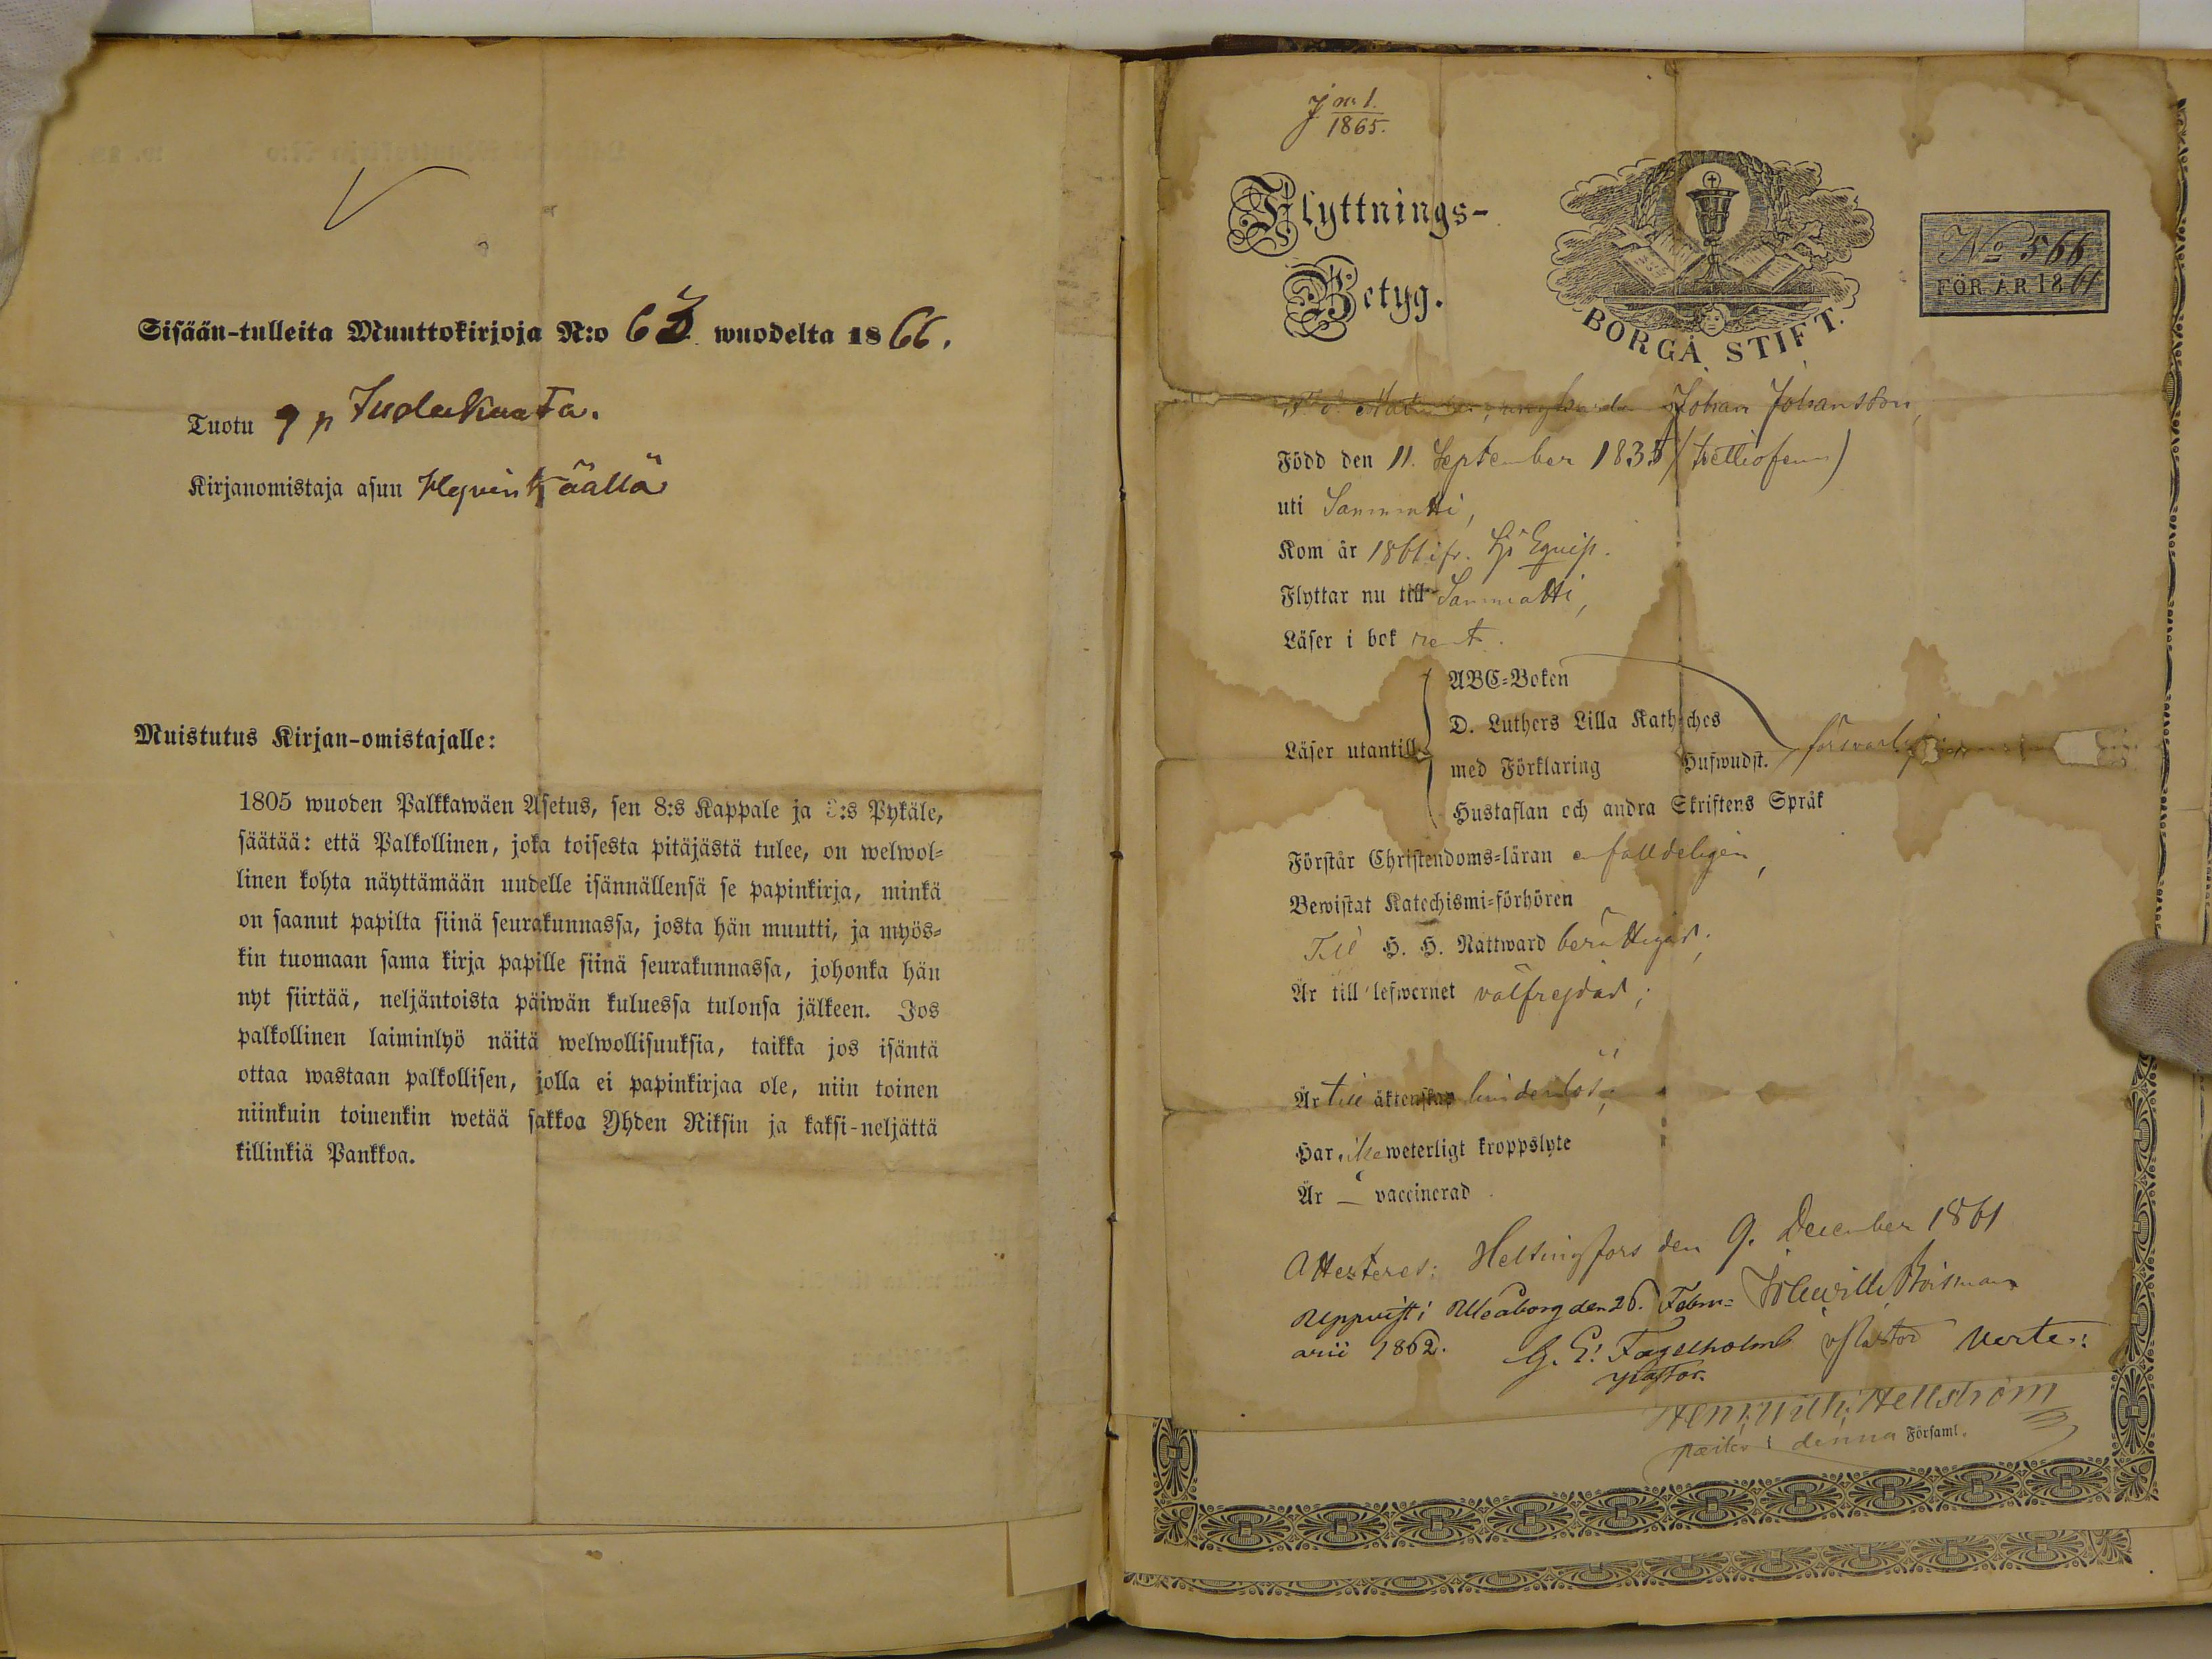 Sisään-tulleita Muuttokirjoja N:o 63 wuodelta 1866.
Tuotu 9 p Judukuuta.
Kirjanomistaja asuu Hyvinkäällä
Muistutus Kirjan-omistajalle:
1805 wuoden Palkkawäen Asetus, sen 8:s Kappale ja :s Pykäle,
säätää: että Palkollinen, joka toisesta pitäjästä tulee, on welwol-
linen kohta näyttämään uudelle isännällensä se papinkirja, minkä
on saanut papilta siinä seurakunnassa, josta hän muutti, ja myös-
kin tuomaan sama kirja papille siinä seurakunnassa, johonka hän
nyt siirtää, neljäntoista päiwän kuluessa tulonsa jälkeen. Jos
palkollinen laiminlyö näitä welwollisuuksia, taikka jos isäntä
ottaa wastaan palkollisen, jolla ei papinkirjaa ole, niin toinen
niinkuin toinenkin wetää sakkoa Yhden Riksin ja kaksi-neljättä
killinkiä Pankkoa.
J nr 1.
1865.
Flyttnings-
Betyg.
BORGÅ STIFT.
No 566
FÖR ÅR 1861
Johan Johansson,
Född den 11. September 1835
uti Sammatti,
Kom år 1861 ifr. Sjö Equip.
Flyttar nu till Sammatti,
Läser i bok rent.
Läser utantill
ABC-Boken
D. Luthers Lilla Kathches
med Förklaring Hufwudst.
försvarligen
Hustaflan och andra Skriftens Språk
Förstår Christendoms-läran enfaldeligen,
Bewistat Katechismi-förhören
Till H. H. Nattward berättigad;
Är till lefwernet välfrejdad;
Är till äktenskap hinderlös;
Har icke weterligt kroppslyte
Är — vaccinerad
Attesteras; Helsingfors den 9. December 1861
Uppvist i Uleåborg den 26. Febru-
arii 1862. G. E. Fagerholm
Pastor.
v Pastor Verte:
Henr. Wilh. Hellström
pastor i denna Församl.